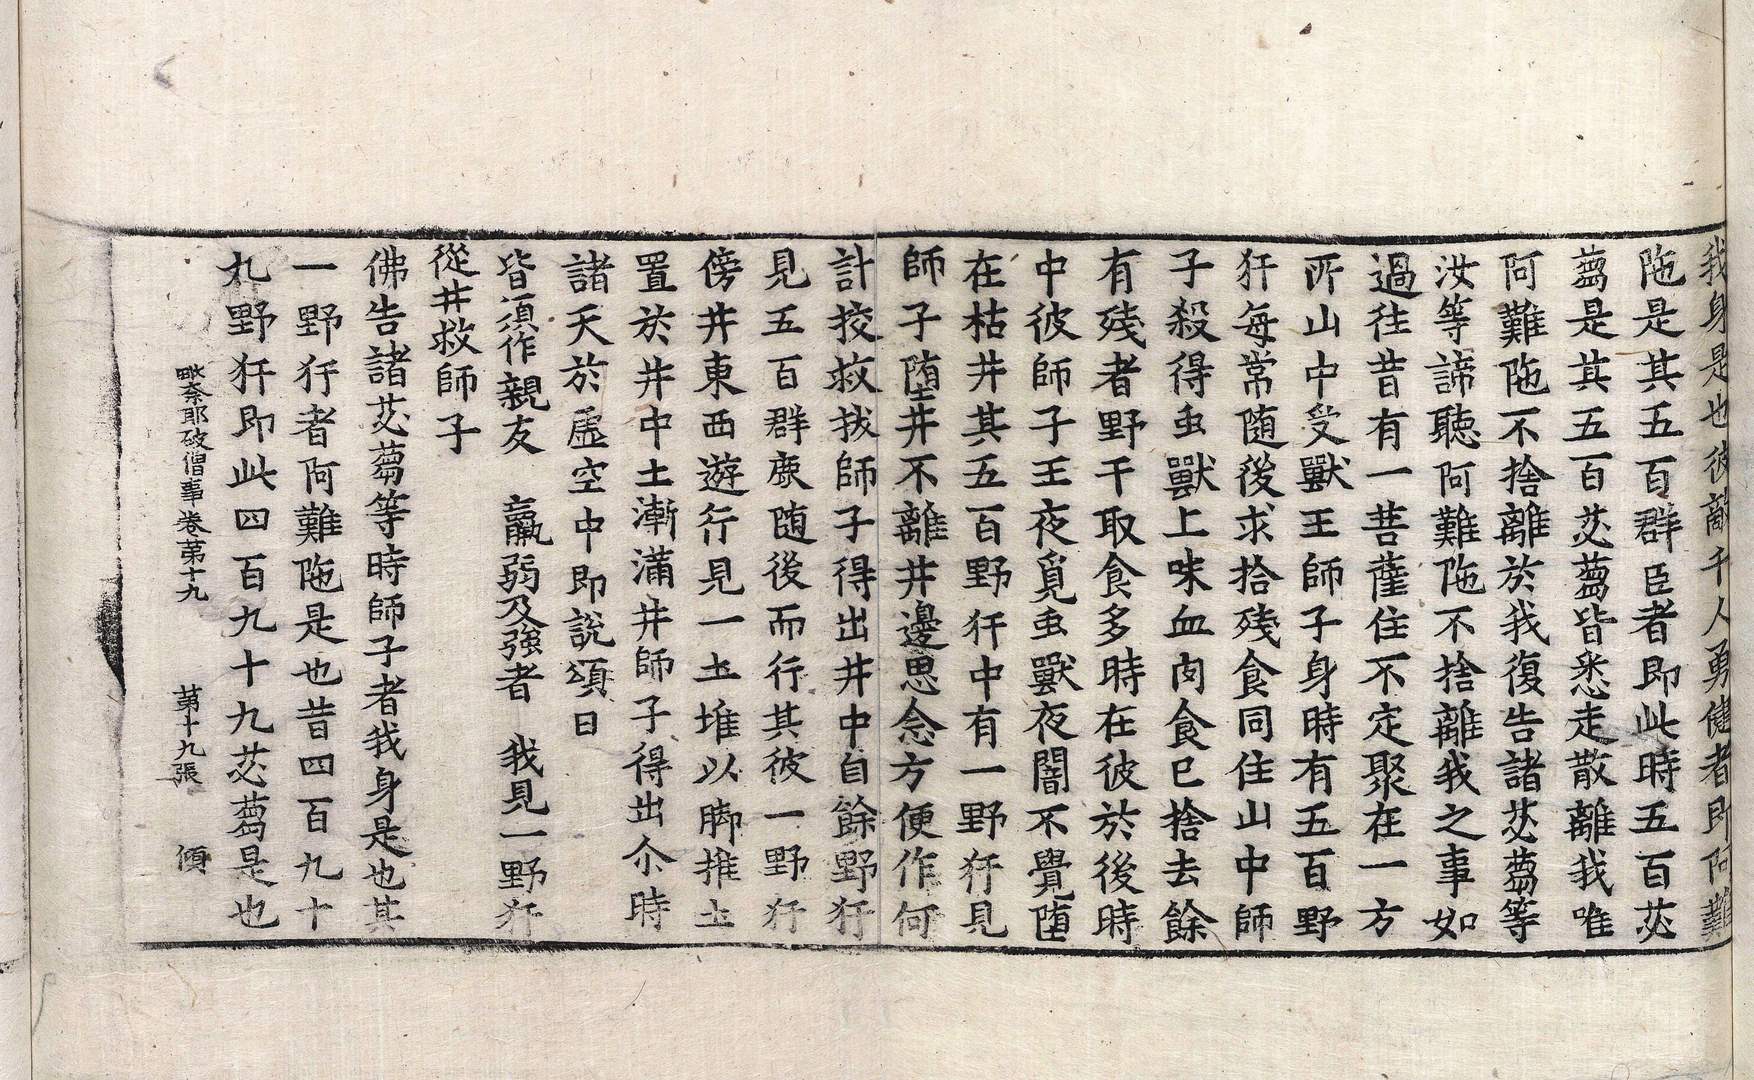 我身是也彼敵千人勇健者即阿難
陁是其五百群臣者即此時五百苾
蒭是其五百苾蒭皆悉走散離我唯
阿難陁不捨離於我復告諸苾蒭等
汝等諦聽阿難陁不捨離我之事如
過往昔有一菩薩住不定聚在一方
所山中受獸王師子身時有五百野
犴每常随後求拾残食同住山中師
子殺得䖝獸上味血肉食已捨去餘
有残者野干取食多時在彼於後時
中彼師子王夜覓䖝獸夜闇不覺堕
在枯井其五百野犴中有一野犴見
師子堕井不離井邊思念方便作何
計挍救拔師子得出井中自餘野犴
見五百群鹿随後而行其彼一野犴
傍井東西遊行見一𡈽堆以脚推𡈽
置於井中土漸滿井師子得出尒時
諸天於虛空中即說頌曰
皆須作親友　羸弱及強者　我見一野犴
從井救師子
佛告諸苾蒭等時師子者我身是也其
一野犴者阿難陁是也昔四百九十
九野犴即此四百九十九苾蒭是也
毗奈耶破僧事卷第十九　第十九張　傾